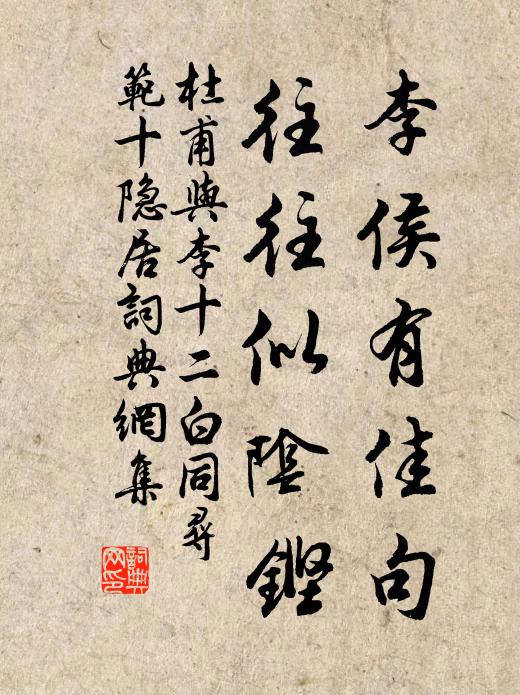 李侯有佳句
往往似陰鏗
杜甫與李十二白同尋
範十隐居詞典網集
詞典
网印